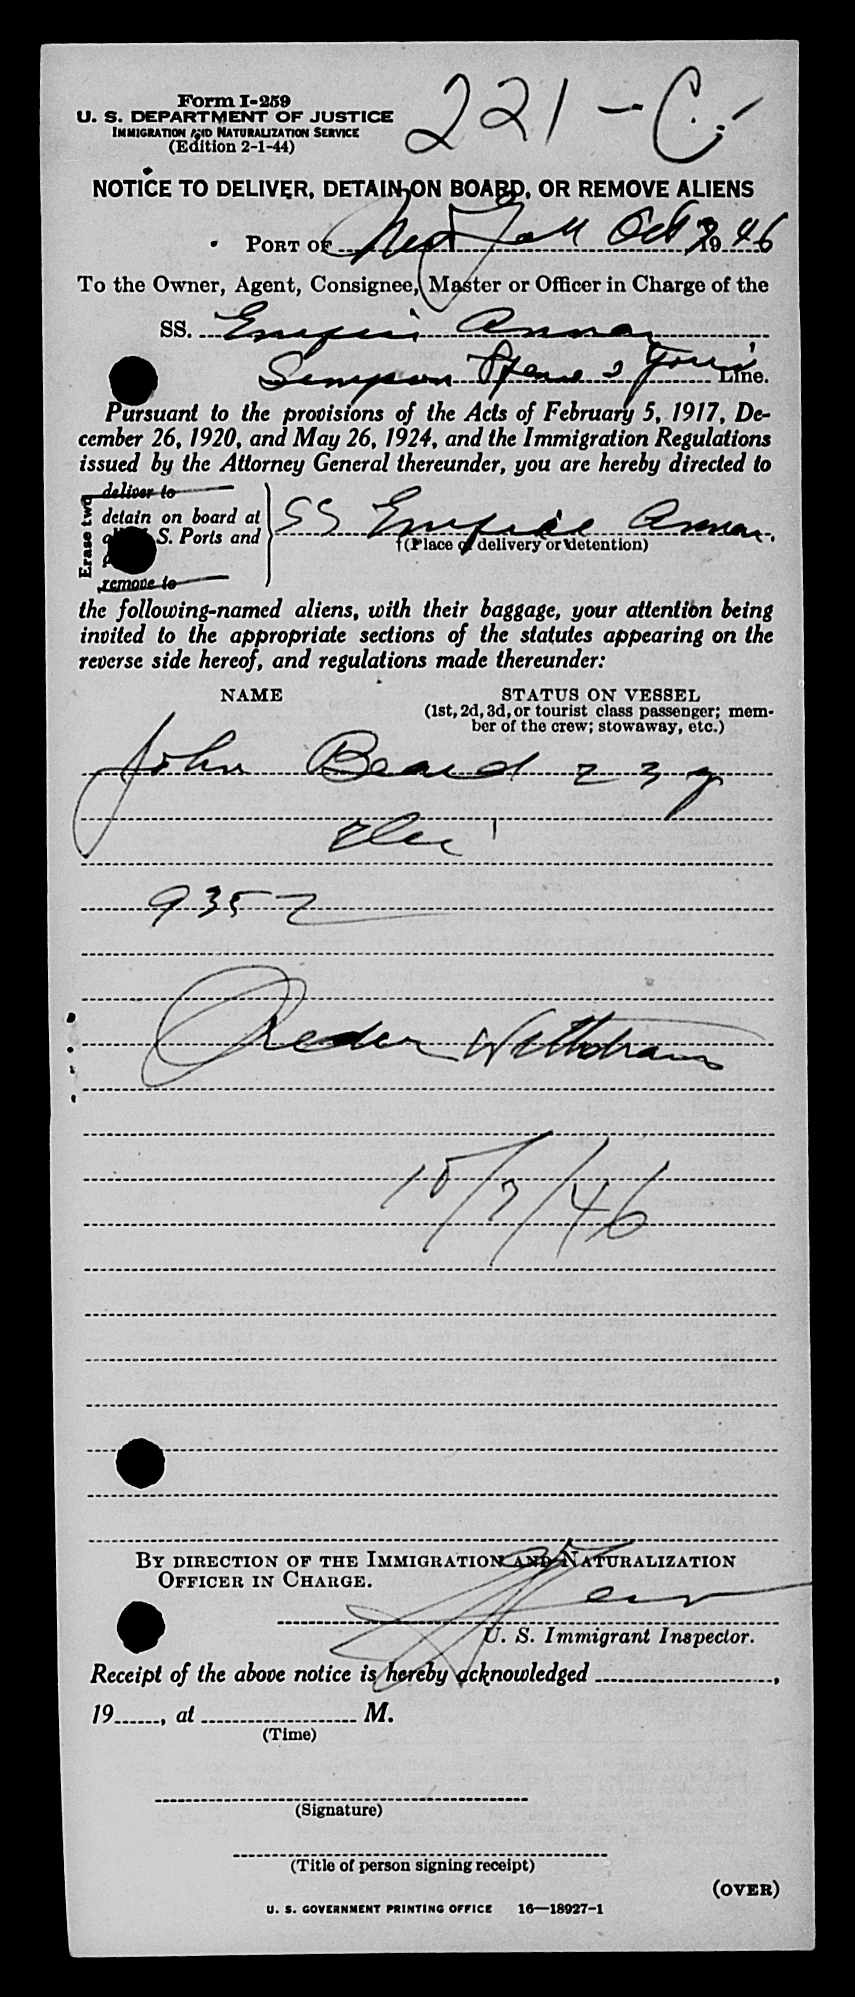 Form I-259
221-C
U. S. DEPARTMENT OF JUSTICE
IMMIGRATION AND NATURALIZATION SERVICE
(Edition 2-1-44)
NOTICE TO DELIVER, DETAIN ON BOARD, OR REMOVE ALIENS
PORT OF New York Oct 7, 1946
To the Owner, Agent, Consignee, Master or Officer in Charge of the
SS. Empire Annan
Simpson Spence & Young Line.
Pursuant to the provisions of the Acts of February 5, 1917, De-
cember 26, 1920, and May 26, 1924, and the Immigration Regulations
issued by the Attorney General thereunder, you are hereby directed to
Erase two
deliver to
detain on board at
S. Ports and
remove to
SS Empire Annan.
(Place of delivery or detention)
the following-named aliens, with their baggage, your attention being
invited to the appropriate sections of the statutes appearing on the
reverse side hereof, and regulations made thereunder:
NAME STATUS ON VESSEL
(1st, 2d, 3d, or tourist class passenger; mem-
ber of the crew; stowaway, etc.)
John Beard 23 y
9352
Order Withdrawn
10/7/46
BY DIRECTION OF THE IMMIGRATION AND NATURALIZATION
OFFICER IN CHARGE.
U. S. Immigrant Inspector.
Receipt of the above notice is hereby acknowledged
19, at M.
(Time)
(Signature)
(Title of person signing receipt)
(OVER)
U. S. GOVERNMENT PRINTING OFFICE 16—18927-1